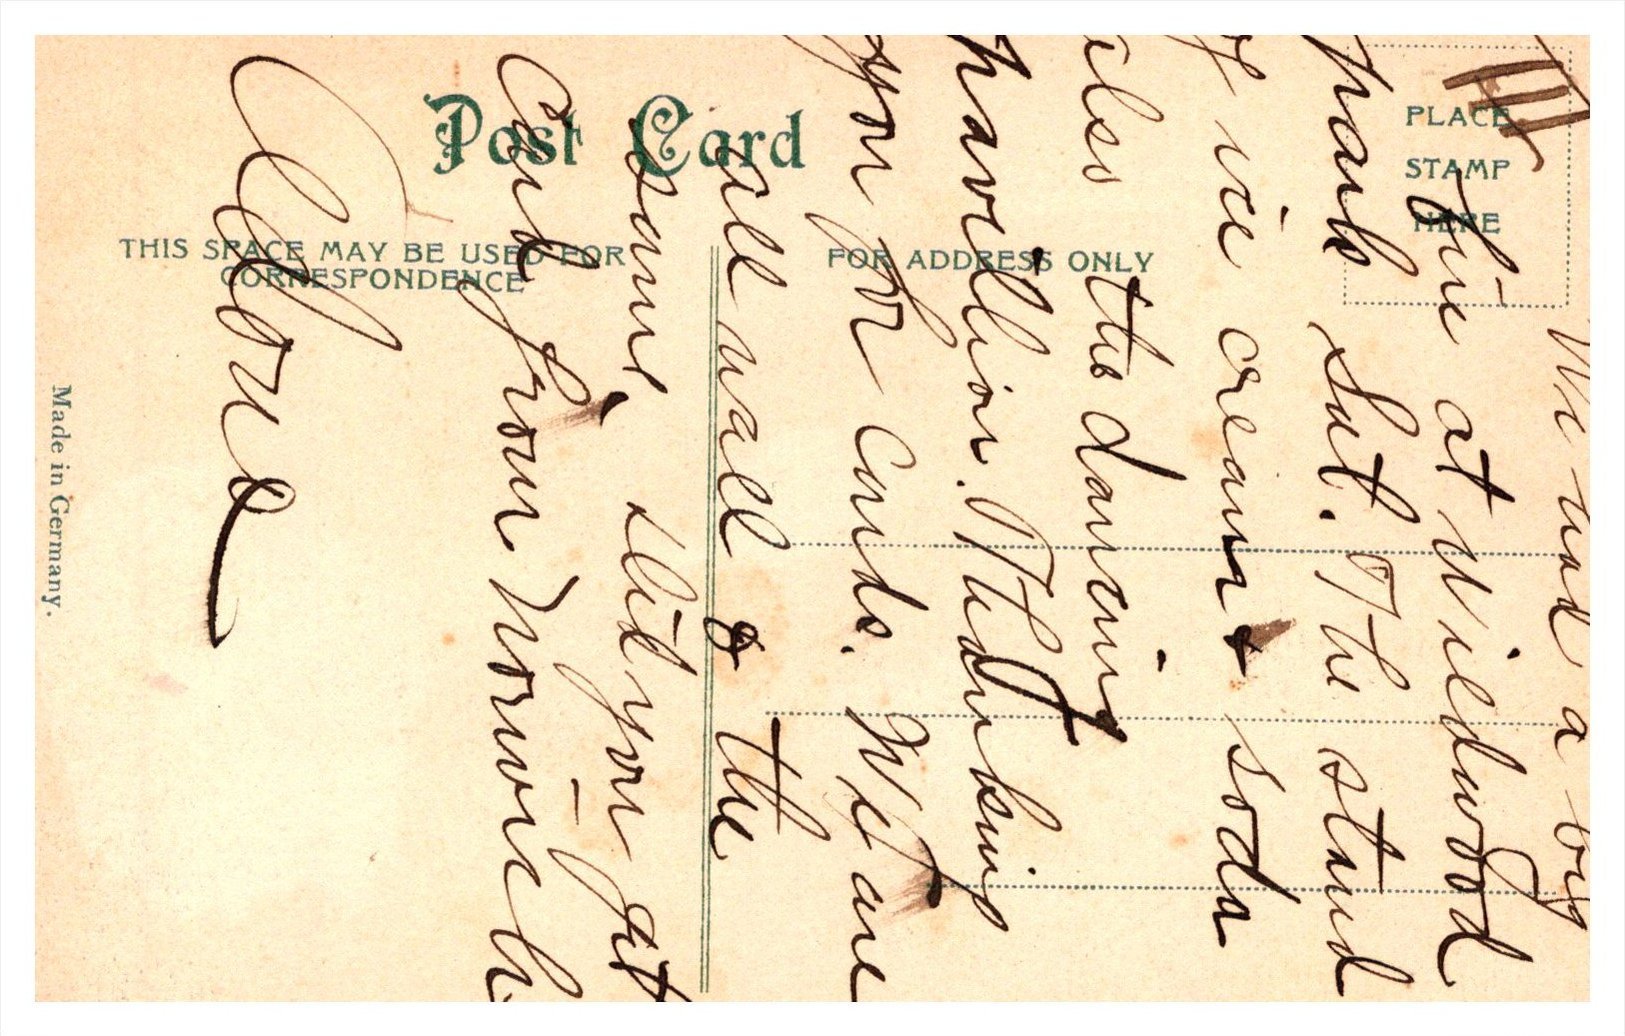 Post Card
THIS SPACE MAY BE USED FOR
CORRESPONDENCE
FOR ADDRESS ONLY
PLACE
STAMP
HERE
Made in Germany.
III
We had a big
time at Wildwood
park Sat. The stand
of ice cream & soda
also the dancing
pavillion. Thanks
you for cards. We are
all well & the
same. Did you get
Card from Norwich